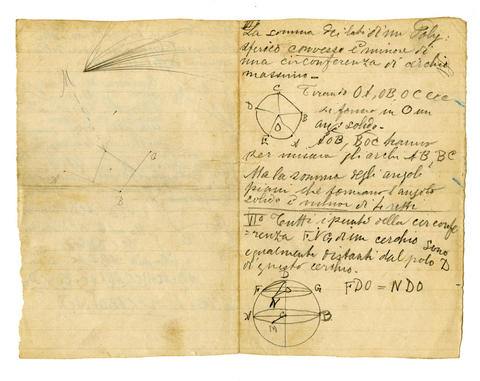 VI°
La somma dei lati di un Poly:
sferico convesso è minore di
una circonferenza di archio
massimo.—
Tirando OA, OB, OC ecc
si forma in O un
ang: solido.—
AOB, BOC hanno
per misura gli archi AB, BC
Ma la somma degli angoli
piani che formano l'angolo
solido è minor di 4 retti
VII° Tutti i punti della circonfe
renza FNG di un cerchio sono
egualmente distanti dal polo D
di questo cerchio.
FDO = NDO
C
D
B
O
E
A
D
F
G
N
C
B
M
B